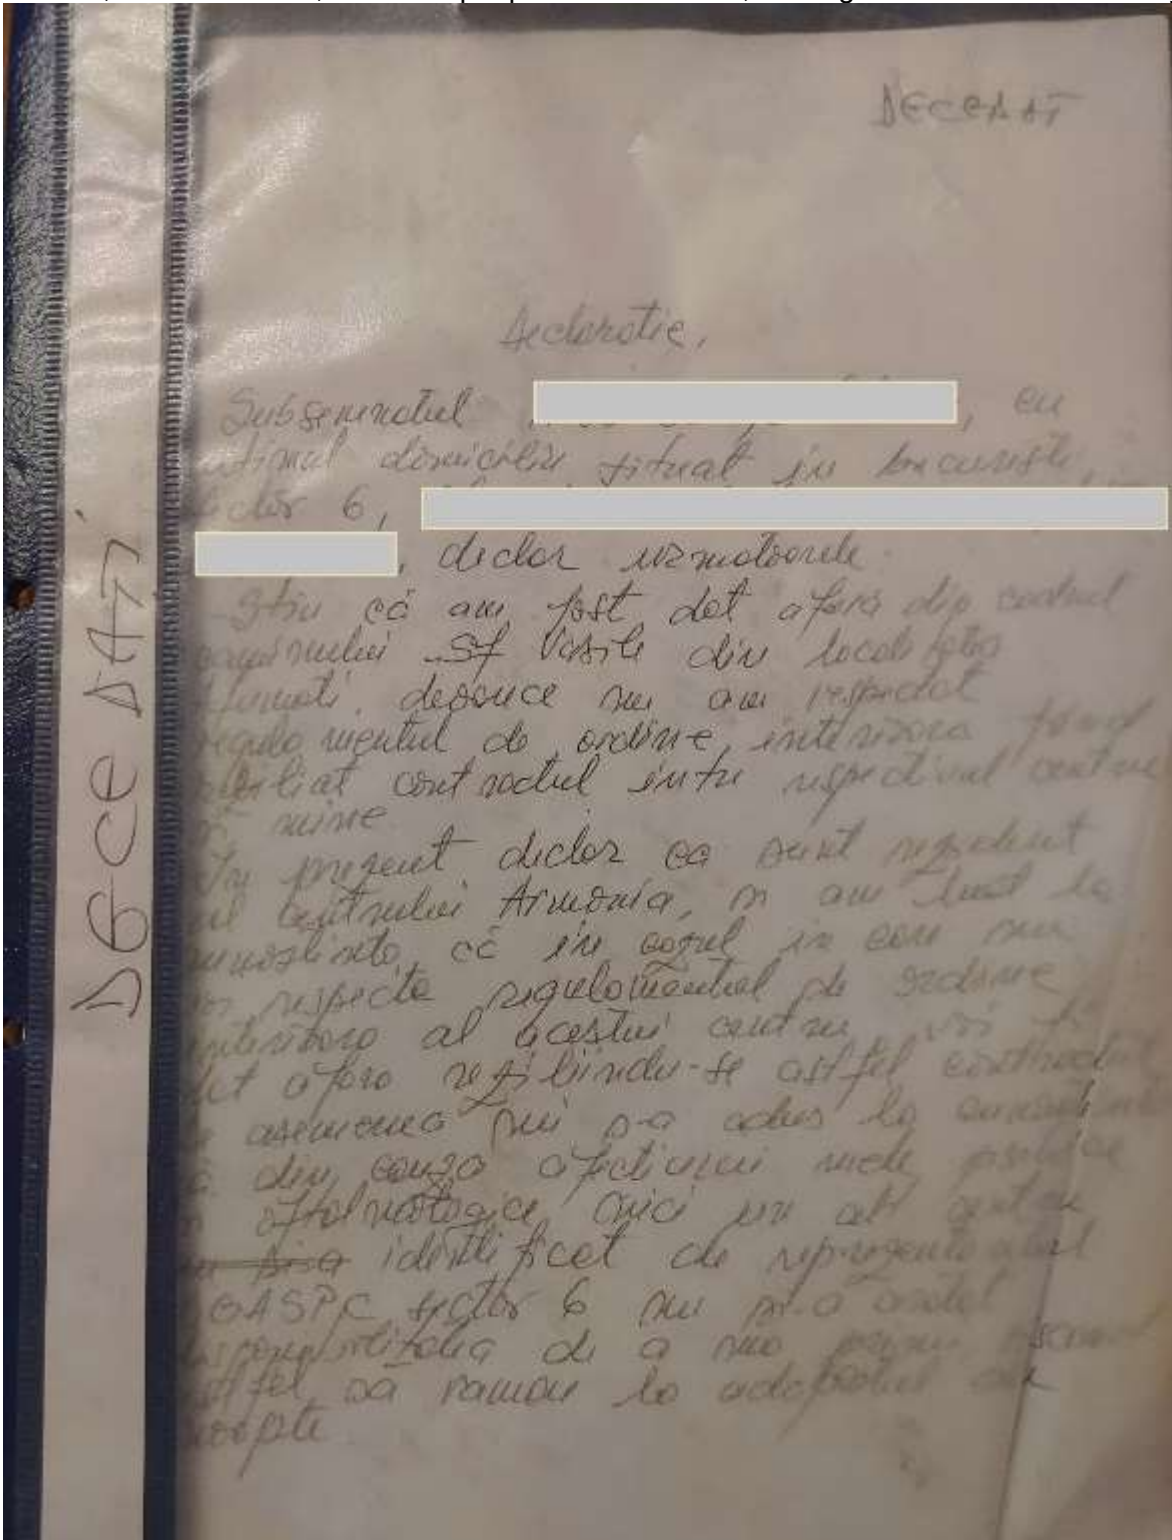 DECEDAT
DECEDAȚI
Declaratie,
Subsemnatul , cu
ultimul domiciliu situat in Bucuresti,
sector 6,
, declar urmatoarele
- Stiu că am fost dat afară din cadrul
caminului Sf Vasile din localitatea
deoarece nu am respectat
regulamentul de ordine interioara fiind
reziliat contractul intre respectivul centru
si mine
In prezent declar ca sunt rezident
al centrului Armonia, si am luat la
cunostinta, că in cazul in care nu
voi respecta regulamentul de ordine
interioara al acestui centru voi fi
dat afara reziliindu-se astfel contractul
De asemenea mi s-a adus la cunostinta
că din cauza afectiunii mele psihice
si oftalmologice nici un alt centru
identificat de reprezentantul
DGASPC sector 6 nu si-a aratat
disponibilitatea de a ma primi
astfel sa raman la adapostul de
noapte